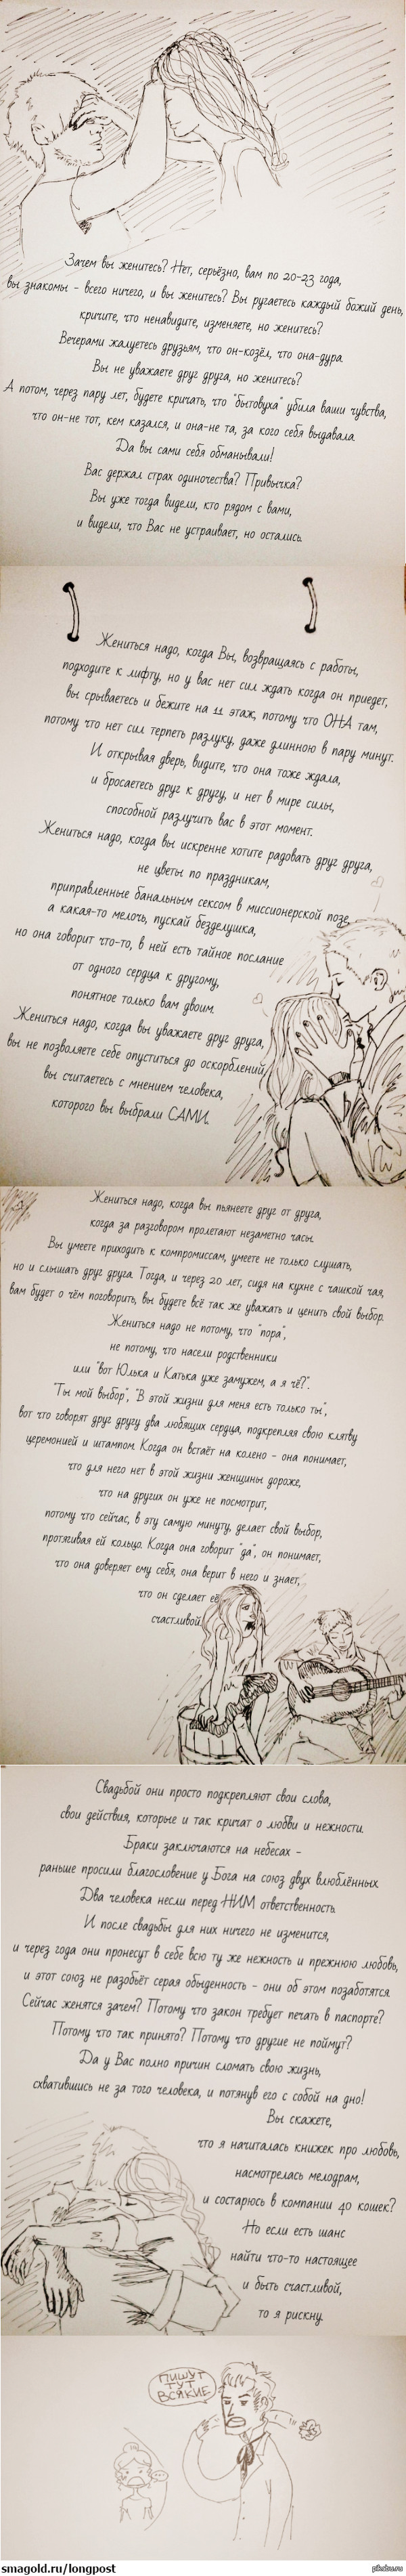 Зачем вы женитесь? Нет, серьёзно, вам по 20-23 года,
вы знакомы - всего ничего, и вы женитесь? Вы ругаетесь каждый божий день,
кричите, что ненавидите, изменяете, но женитесь?
Вечерами жалуетесь друзьям, что он-козёл, что она-дура.
Вы не уважаете друг друга, но женитесь?
А потом, через пару лет, будете кричать, что "бытовуха" убила ваши чувства,
что он-не тот, кем казался, и она-не та, за кого себя выдавала.
Да вы сами себя обманывали!
Вас держал страх одиночества? Привычка?
Вы уже тогда видели, кто рядом с вами,
и видели, что Вас не устраивает, но остались.
Жениться надо, когда Вы, возвращаясь с работы,
подходите к лифту, но у вас нет сил ждать когда он приедет,
вы срываетесь и бежите на 11 этаж, потому что ОНА там,
потому что нет сил терпеть разлуку, даже длинною в пару минут.
И открывая дверь, видите, что она тоже ждала,
и бросаетесь друг к другу, и нет в мире силы,
способной разлучить вас в этот момент.
Жениться надо, когда вы искренне хотите радовать друг друга,
не цветы по праздникам,
приправленные банальным сексом в миссионерской позе,
а какая-то мелочь, пускай безделушка,
но она говорит что-то, в ней есть тайное послание
от одного сердца к другому,
понятное только вам двоим.
Жениться надо, когда вы уважаете друг друга,
вы не позволяете себе опуститься до оскорблений,
вы считаетесь с мнением человека,
которого вы выбрали САМИ.
Жениться надо, когда вы пьянеете друг от друга,
когда за разговором пролетают незаметно часы.
Вы умеете приходить к компромиссам, умеете не только слушать,
но и слышать друг друга. Тогда, и через 20 лет, сидя на кухне с чашкой чая,
вам будет о чём поговорить, вы будете всё так же уважать и ценить свой выбор.
Жениться надо не потому, что "пора",
не потому, что насели родственники
или "вот Юлька и Катька уже замужем, а я чё?".
"Ты мой выбор", "В этой жизни для меня есть только ты",
вот что говорят друг другу два любящих сердца, подкрепляя свою клятву
церемонией и штампом. Когда он встаёт на колено - она понимает,
что для него нет в этой жизни женщины дороже,
что на других он уже не посмотрит,
потому что сейчас, в эту самую минуту, делает свой выбор,
протягивая ей кольцо. Когда она говорит "да", он понимает,
что она доверяет ему себя, она верит в него и знает,
что он сделает её
счастливой.
Свадьбой они просто подкрепляют свои слова,
свои действия, которые и так кричат о любви и нежности.
Браки заключаются на небесах -
раньше просили благословение у Бога на союз двух влюблённых.
Два человека несли перед НИМ ответственность.
И после свадьбы для них ничего не изменится,
и через года они пронесут в себе всю ту же нежность и прежнюю любовь,
и этот союз не разобьёт серая обыденность - они об этом позаботятся.
Сейчас женятся зачем? Потому что закон требует печать в паспорте?
Потому что так принято? Потому что другие не поймут?
Да у Вас полно причин сломать свою жизнь,
схватившись не за того человека, и потянув его с собой на дно!
Вы скажете,
что я начиталась книжек про любовь,
насмотрелась мелодрам,
и состарюсь в компании 40 кошек?
Но если есть шанс
найти что-то настоящее
и быть счастливой,
то я рискну.
ПИШУТ
ТУТ
ВСЯКИЕ
...
smagold.ru/longpost
pikabu.ru